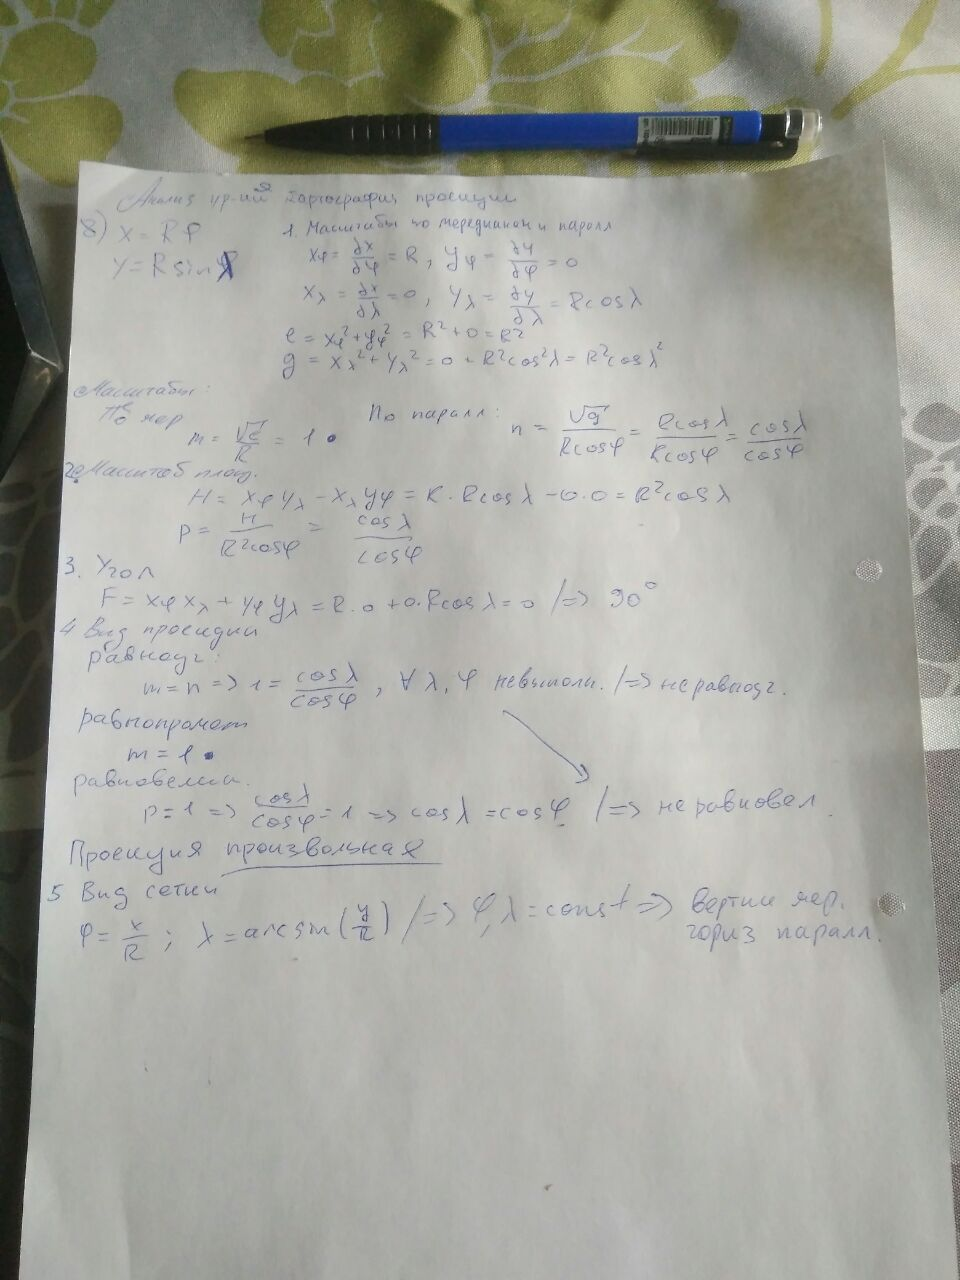 Анализ ур-ий картографич проекции
8) x = Rφ
y = R sin λ
1. Масштабы по меридианам и паралл
xφ = ∂x/∂φ = R, yφ = ∂y/∂φ = 0
xλ = ∂x/∂λ = 0, yλ = ∂y/∂λ = R cos λ
e = xφ² + yφ² = R² + 0 = R²
g = xλ² + yλ² = 0 + R² cos² λ = R² cos λ²
Масштабы:
По мер
m = √e/R = 1
По паралл: n = √g/(R cos φ) = R cos λ/(R cos φ) = cos λ/cos φ
2. Масштаб площ.
H = xφ yλ − xλ yφ = R · R cos λ − 0·0 = R² cos λ
p = H/(R² cos φ) = cos λ/cos φ
3. Угол
F = xφ xλ + yφ yλ = R·0 + 0·R cos λ = 0 /=> 90°
4 Вид проекции
равноуг:
m = n => 1 = cos λ/cos φ, ∀ λ, φ невыполн. /=> не равноуг.
равнопромеж
m = 1
равновелик.
p = 1 => cos λ/cos φ = 1 => cos λ = cos φ /=> не равновел.
Проекция произвольная
5 Вид сетки
φ = x/R; λ = arcsin(y/R) /=> φ, λ = const => вертик мер.
гориз паралл.